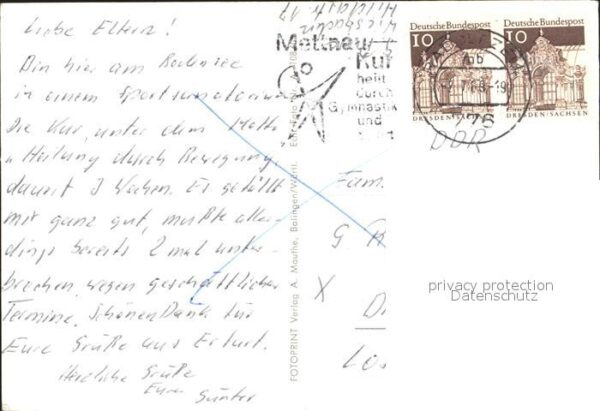 Liebe Eltern!
Bin hier am Bodensee
in einem Sportsanatorium
Die Kur, unter dem Motto
" Heilung durch Bewegung,
dauert 3 Wochen. Es gefällt
mir ganz gut, mußte aller-
dings bereits 2 mal unter-
brechen wegen geschäftlicher
Termine. Schönen Dank für
Eure Grüße aus Erfurt.
Herzliche Grüße
Eure Günter
FOTOPRINT Verlag A. Mauthe, Balingen/Württ.
Mettnau
Kur
heilt
durch
Gymnastik
und
Deutsche Bundespost
10
DRESDEN/SACHSEN
Deutsche Bundespost
10
DRESDEN/SACHSEN
DDR
Fam.
G
X
privacy protection
Datenschutz